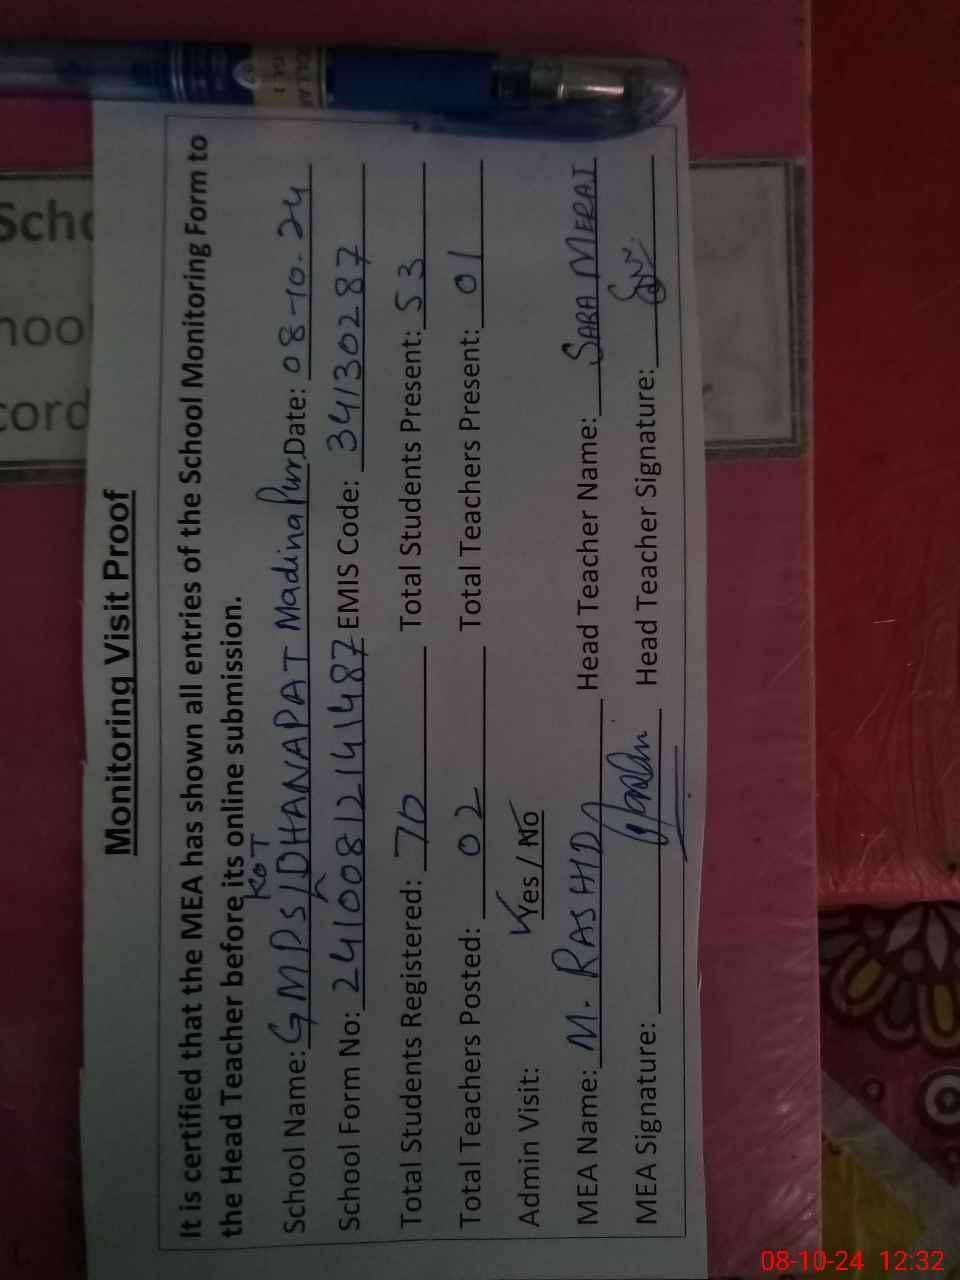 Monitoring Visit Proof
It is certified that the MEA has shown all entries of the School Monitoring Form to
the Head Teacher before its online submission.
KOT
School Name: GMPS / DHANAPAT Madina Pur Date: 08-10-24
School Form No: 24100812141487 EMIS Code: 34130287
Total Students Registered: 70 Total Students Present: 53
Total Teachers Posted: 02 Total Teachers Present: 01
Admin Visit: Yes / No
MEA Name: M. RASHID Head Teacher Name: SARA MERAJ
MEA Signature: Head Teacher Signature:
Scho
hool
cord
08-10-24 12:32